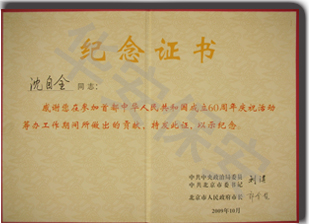 纪念证书
沈自全 同志：
感谢您在参加首都中华人民共和国成立60周年庆祝活动
筹办工作期间所做出的贡献，特发此证，以示纪念。
中共中央政治局委员
中共北京市委书记 刘淇
北京市人民政府市长
2009年10月